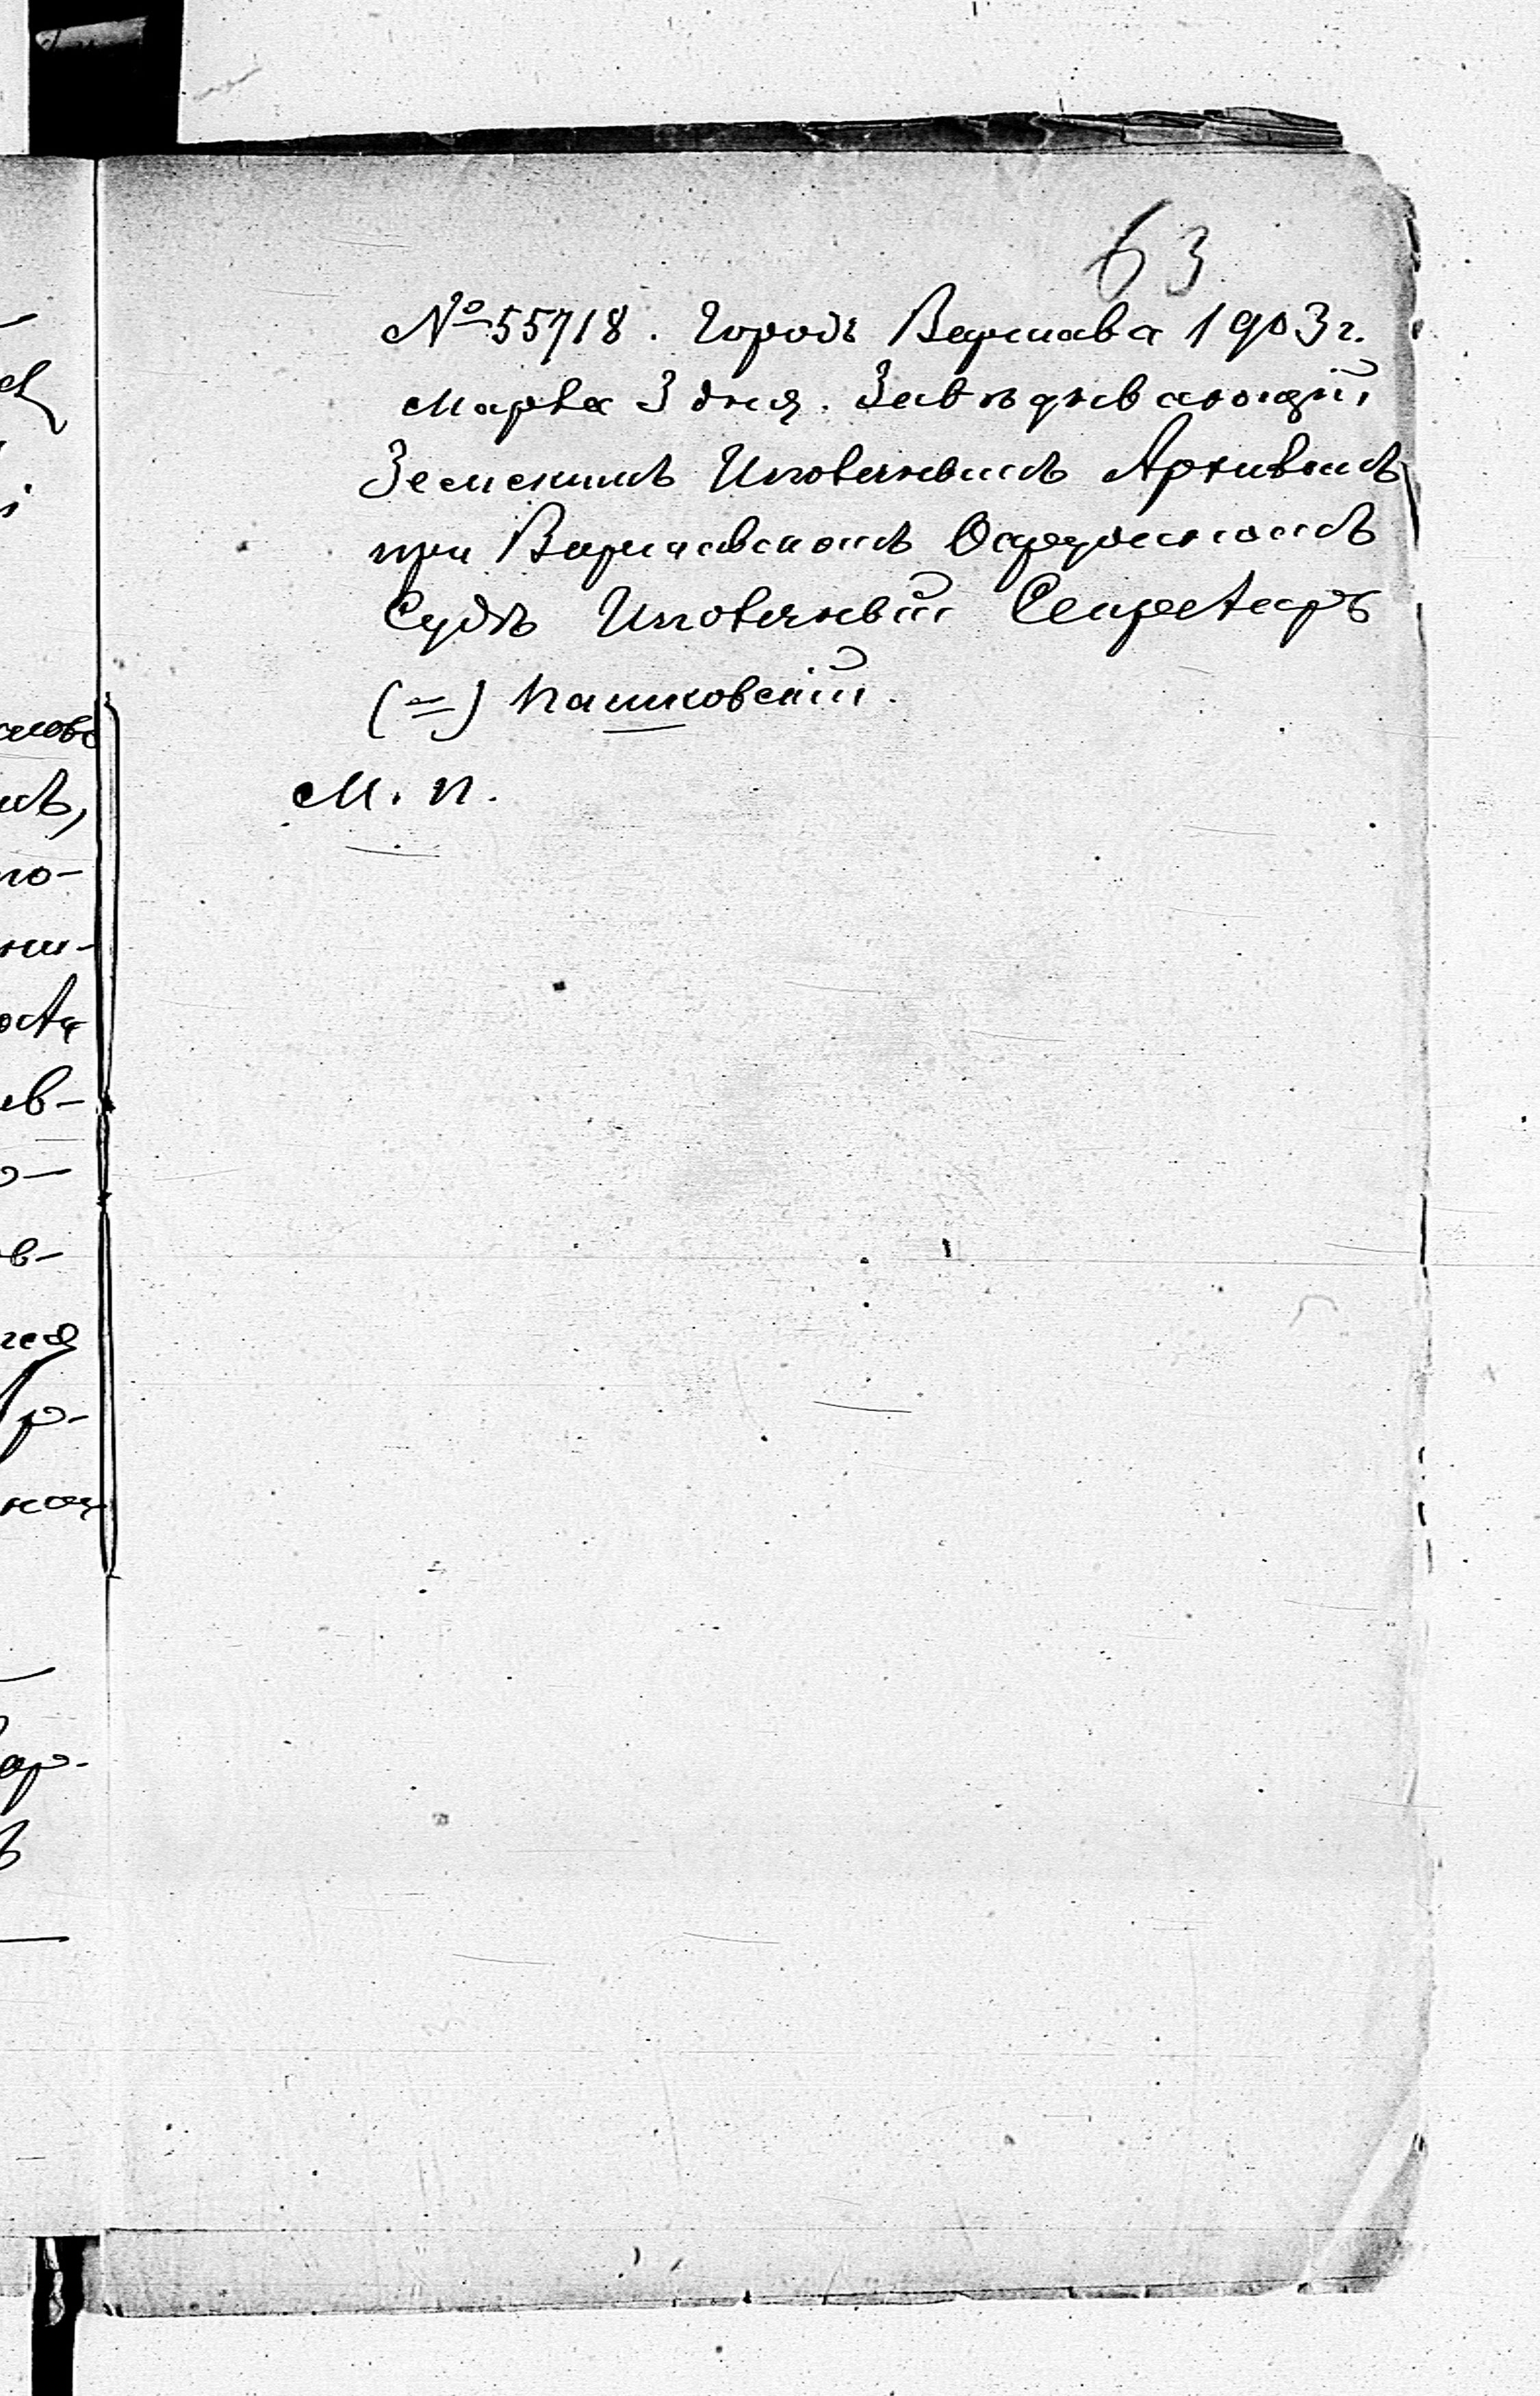 63
№ 55718. Городъ Варшава 1903 г.
Марта 3 дня. Завѣдывающій
Земскимъ Ипотечнымъ Архивомъ
при Варшавскомъ Окружномъ
Судѣ Ипотечный Секретарь
(=) Пашковскій.
М. П.